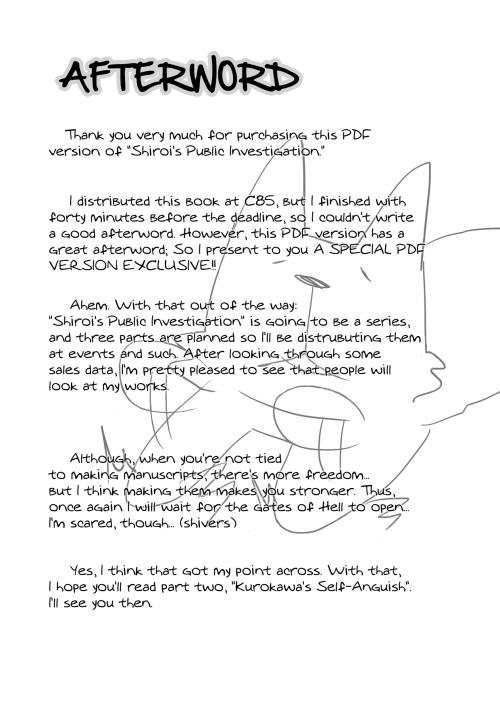 AFTERWORD
Thank you very much for purchasing this PDF
version of "Shiroi's Public Investigation."
I distributed this book at C85, but I finished with
forty minutes before the deadline, so I couldn't write
a good afterword. However, this PDF version has a
great afterword; So I present to you A SPECIAL PDF
VERSION EXCLUSIVE!!
Ahem. With that out of the way:
"Shiroi's Public Investigation" is going to be a series,
and three parts are planned so I'll be distrubuting them
at events and such. After looking through some
sales data, I'm pretty pleased to see that people will
look at my works.
Although, when you're not tied
to making manuscripts, there's more freedom...
But I think making them makes you stronger. Thus,
once again I will wait for the Gates of Hell to open...
I'm scared, though... (shivers)
Yes, I think that got my point across. With that,
I hope you'll read part two, "Kurokawa's Self-Anguish".
I'll see you then.